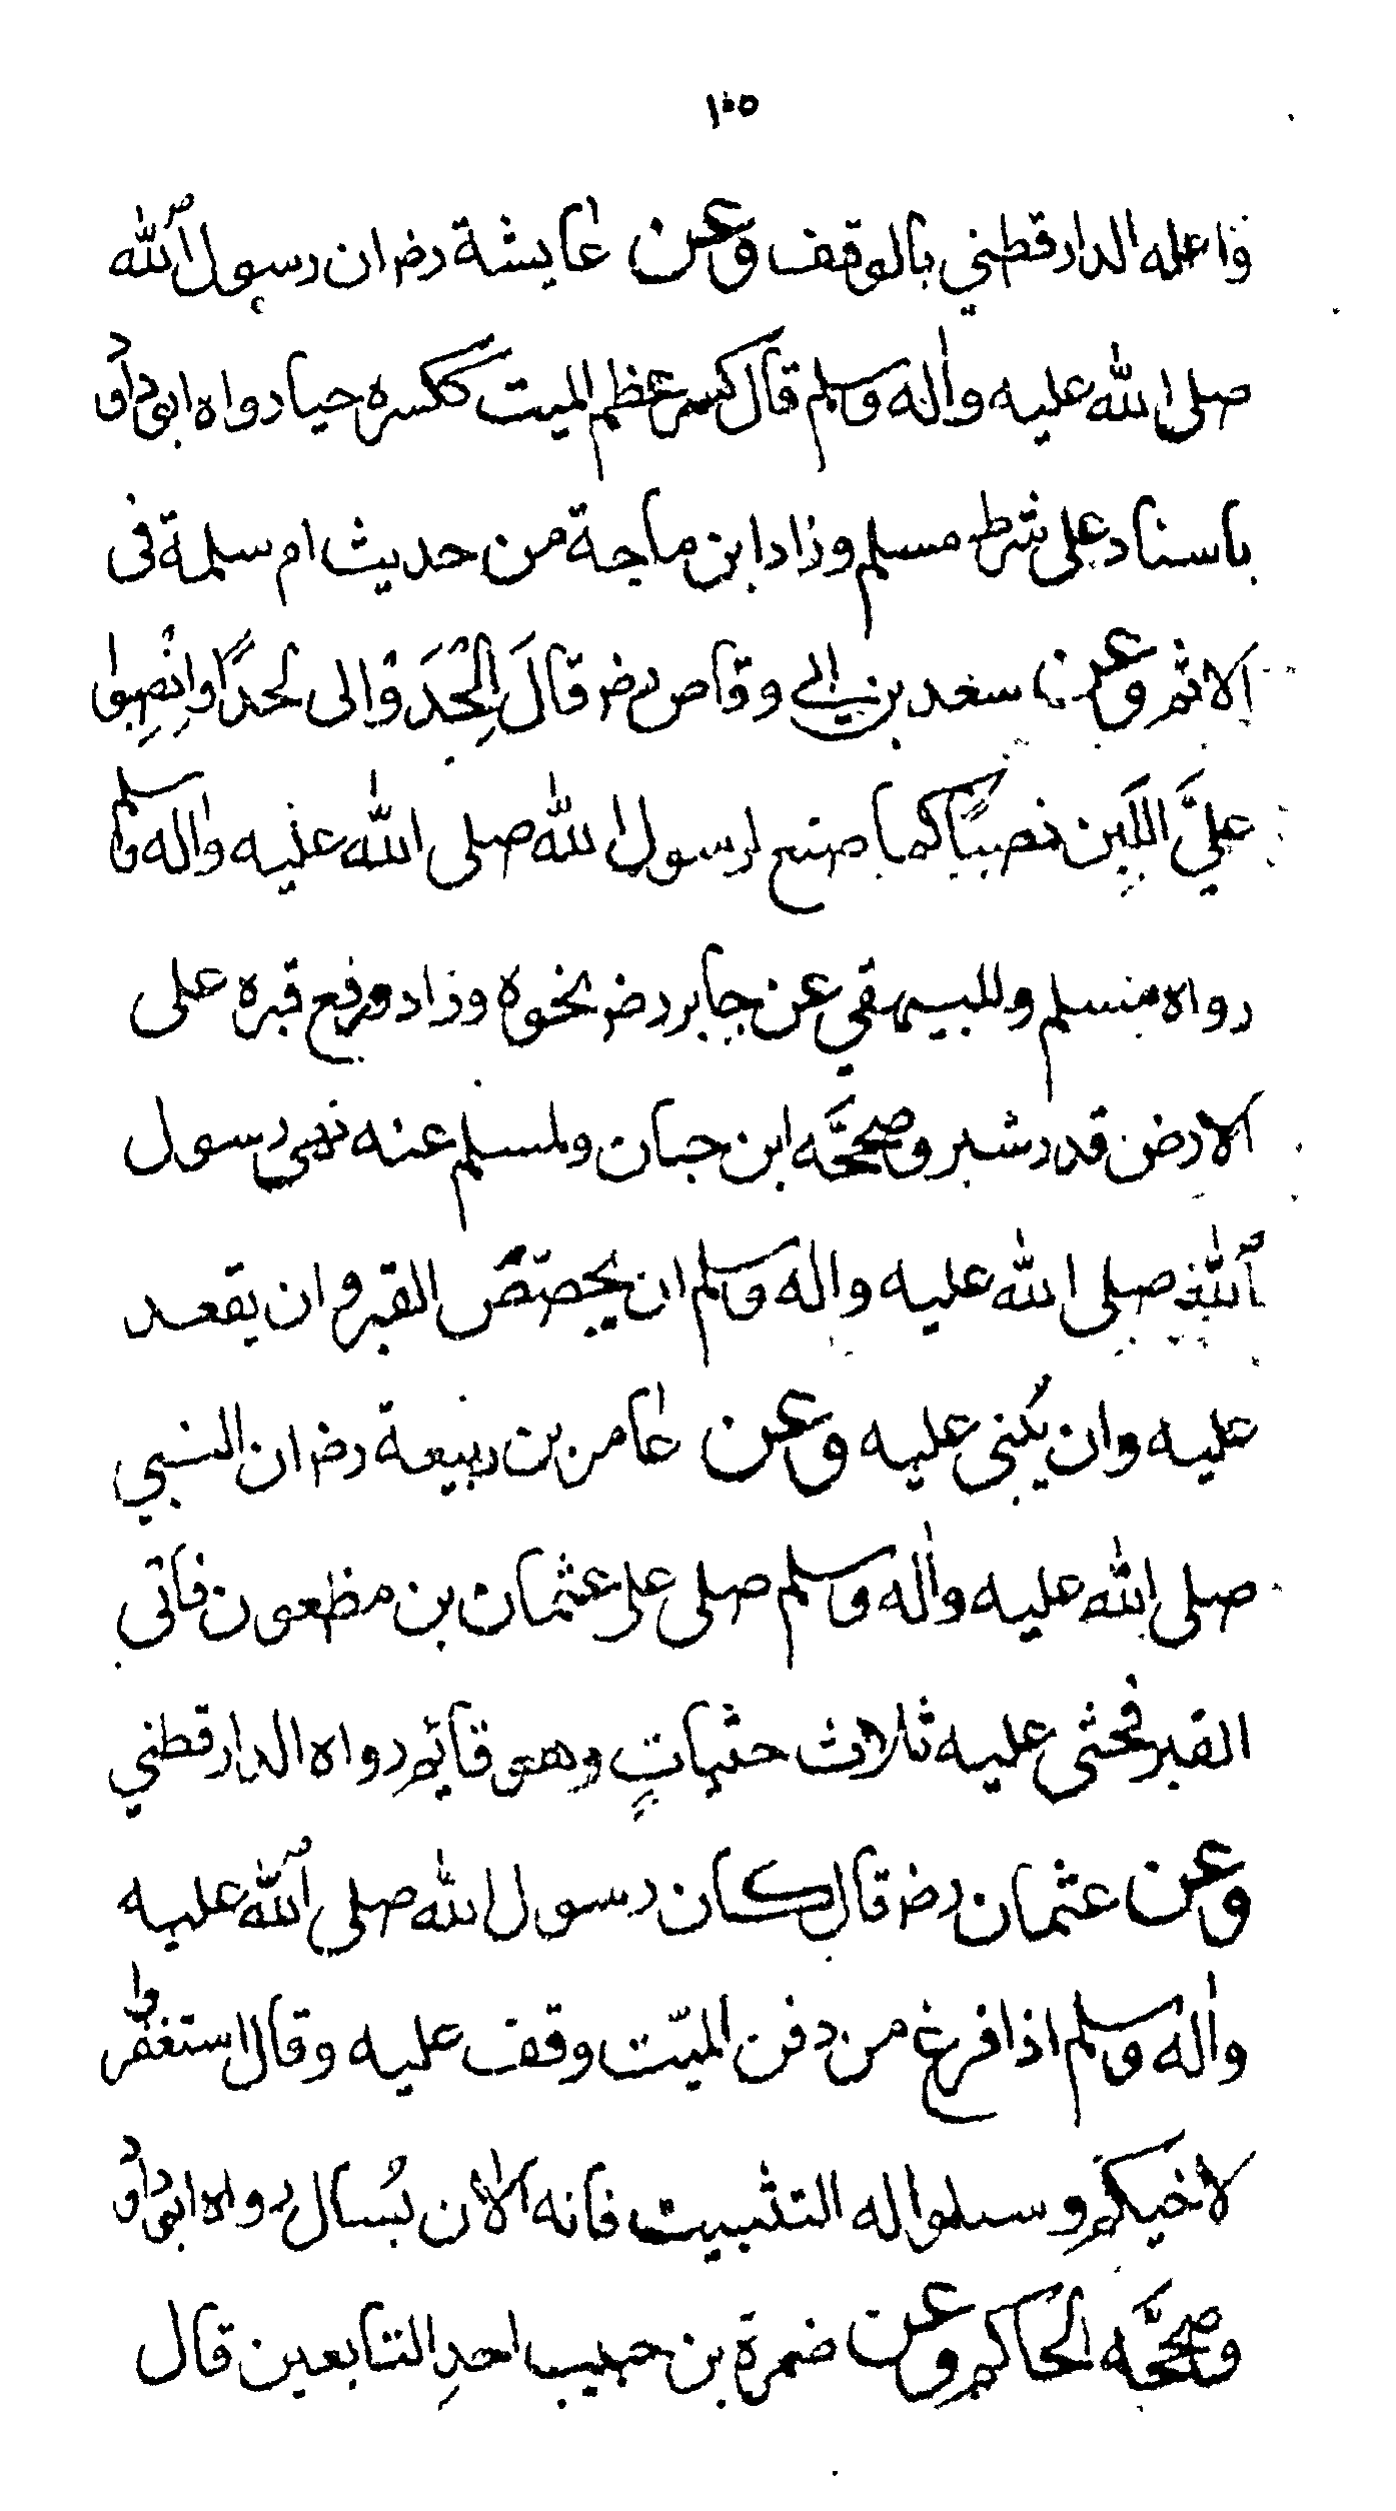 ١٠٥
واعله الدارقطني بالوقف وعن عايشة رضر ان رسول الله
صلى الله عليه واله وسلم قال كسر عظم الميت ككسره حيا رواه ابو داؤد
باسناد على شرط مسلم وزاد ابن ماجة من حديث ام سلمة فى
الاثم وعن سعد بن ابي وقاص رضر قالَ اِلْحَدَوْا لى لحدًا وانصِبوا
عليَّ اللَبِن نصبًا كما صنع لرسول الله صلى الله عليه واله وسلم
رواه مسلم وللبيهقي عن جابر رضر نحوه وزاد ورفع قبره على
الارض قدر شبر وصححَّه ابن حبان ولمسلم عنه نهى رسول
الله صلى الله عليه واله وسلم ان يجصّصَ القبر وان يقعد
عليه وان يُبنى عليه وعن عامر بن ربيعة رضر ان النبي
صلى الله عليه واله وسلم صلى على عثمان بن مظعون فاتى
القبر فحثى عليه ثلاث حثياتٍ وهو قايم رواه الدارقطني
وعن عثمان رضر قال كان رسول الله صلى الله عليه
واله وسلم اذا فرغ من دفن الميّت وقف عليه وقال استغفروا
لاخيكم وسلوا له التثبيت فانه الان يُسال رواه ابو داؤد
وصححَّه الحاكم وعن ضمرة بن حبيب احدِ التابعين قال